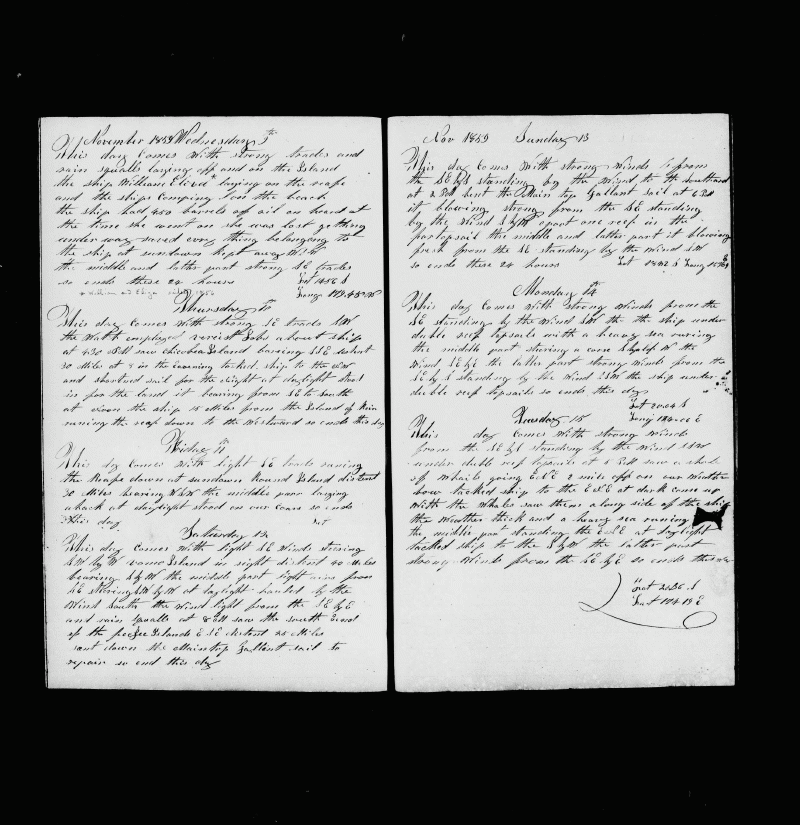 November 1859 Wednesday 9th
This day Comes with strong trades and
rain squalls laying off and on the Island
the ship William Eliza laying on the reafe
and the ships Compiny on the beach
the ship had 450 barrels off oil on board at
the time she went on she was lost getting
under way saved evry thing belonging to
the ship at sundown kept away W S W
the middle and latter part strong SE trades
so ends these 24 hours Lat 14 56 S
William and Eliza Long 179 45 W
Thursday 10th
This day comes with strong SE trads SW
the Watch employed variest Jobs about ship
at 4.30 PM saw Island baring SSE distant
30 Mile at 8 in the evening tacked ship to the
and shortned sail for the night at daylight stood
in for the land it bearing from SE to South
at noon the ship 15 Miles from the Island of
runing the reaf down to the Westward so ends this day
Friday 11th
This dy Comes with light SE trads runing
the Reafe down at sundown Round Island distant
30 Miles bearing the middle par laying
aback at daylight stood on our Cours so ends
this day Lat
Saturday 12
This day comes with light SE Winds stering
SW by W Island in sight distent 40 Miles
bearing S by W the middle part light airs from
SE Stering SW by W at daylight hauled by the
Wind South the wind light from the SE by E
and rain squalls at 8 AM saw the south
of the feeJee Islands ESE distent 25 Miles
sent down the Maintop Gallant sail to
repair so end this dy
Nov 1859 Sunday 13
This day Comes With strong winds from
the SE by S standing by the Wind to the southward
at 2 PM bent the Main top Gallant sail at 6 PM
it blowing strong from the SE standing
by the Wind S by W put one reep in the
fortopsail the middle and latter part it blowing
fresh from the SE standing by the Wind SW
so ends these 24 hours Lat 18 42 S Long
Monday 14th
This day Comes With strong Winds from the
SE standing by the Wind SW the ship under
duble reef topsails with a heavy sea runing
the middle part staring a corse S by W the
Wind SE by E the latter part strong Winds from the
SE by S standing by the Wind SSW the ship under
duble reep topsails so ends this day
Lat 20.04 S
Tuesday 15 Long 174.00 E
This day Comes With strong Winds
from the SE by E standing by the wind SSW
under duble reef topsails at 5 PM saw a shole
of whails going ENE 2 mile off on our weather
bow tacked ship to the ENE at dark come up
With the whales saw them along side of the ship
the weather thick and a heavy sea runing
the middle par standing the ENE at daylight
tacked ship to the S by W the latter part
strong Winds from the SE by E so ends this day
Lat S
Lat 174 18 E